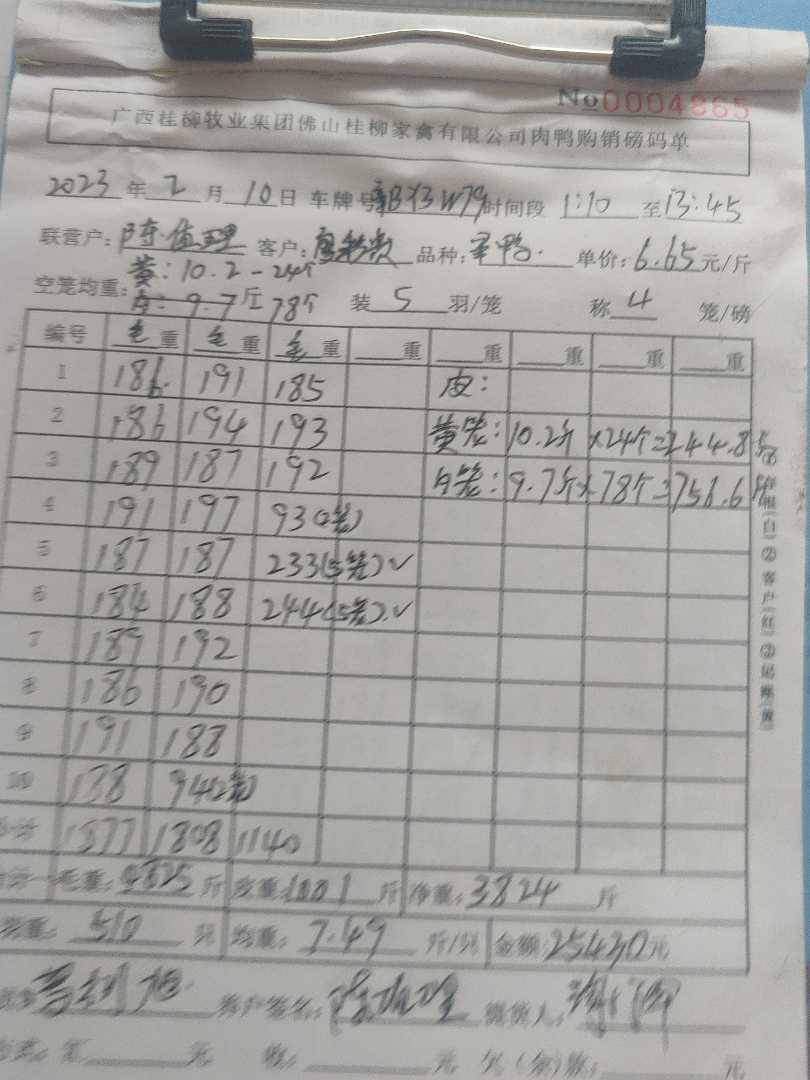 No0004865
广西桂柳牧业集团佛山桂柳家禽有限公司肉鸭购销磅码单
2023年2月10日 车牌号 时间段 1:10 至 13:45
联营户: 客户: 品种: 单价:6.65元/斤
黄:10.2-24个
空笼均重:白:9.7斤78个 装5羽/笼 称4笼/磅
编号 毛重 毛重 毛重 重 重 重 重 重
1 186. 191 185 皮:
2 186 194 193 黄笼:10.2斤×24个=244.8斤
3 189 187 192 白笼:9.7斤×78个=756.6斤
4 191 197 93(2笼)
5 187 187 233(5笼)✓
6 184 188 244(5笼).✓
7 189 192
8 186 190
9 191 188
10 138 94(2笼)
小计 1877 1808 1140
合计 毛重:4825斤 皮重:1001斤 净重:3824斤
510只 均重:7.49斤/只 金额:25430元
客户签名:
元 元 元
①存根(白)②客户(红)③记账(黄)